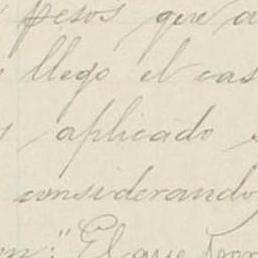 pesos que a
llego el cas
aplicado
considerando
"El que